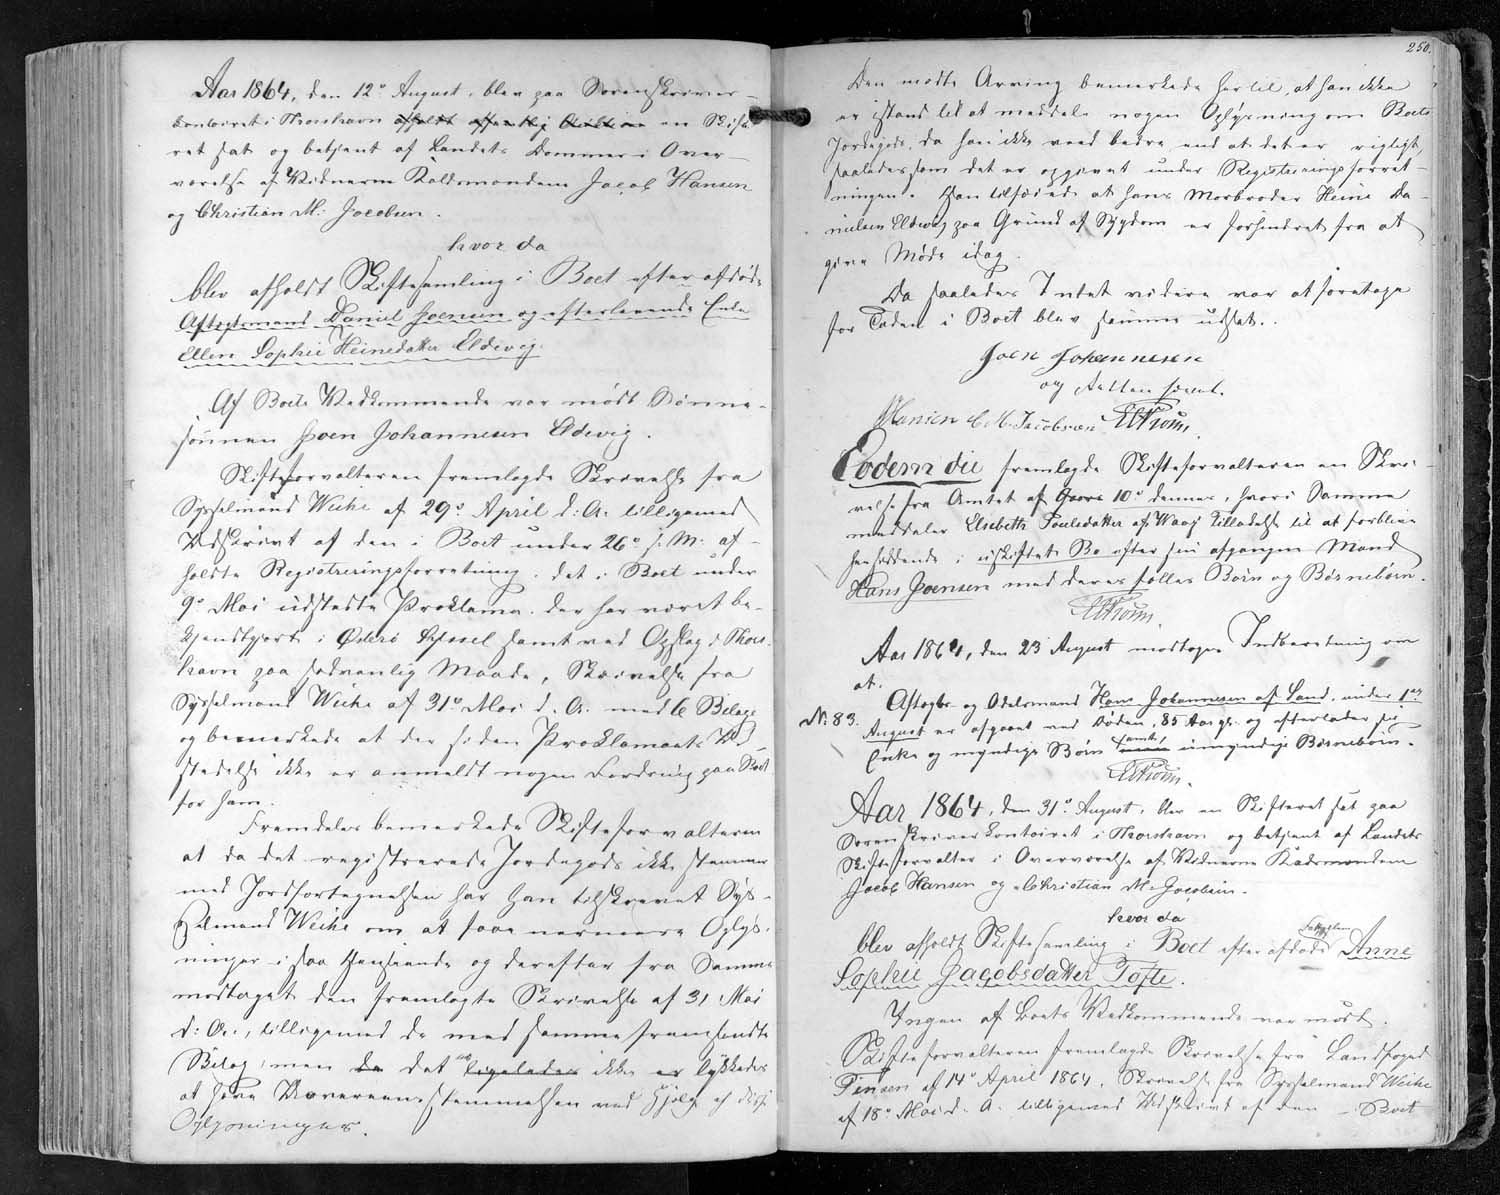 Aar 1864, den 12te August, blev paa Sorenskriver-
kontoiret i Thorshavn afholdt offentlig Auktion en Skifte-
ret sat og betjent af Landets Dommer i Over-
værelse af Vidnerne Raadsmændene Jacob Hansen
og Christian M: Jacobsen.
hvor da
blev afholdt Skiftesamling i Boet efter afdøde
Aftægtsmand Daniel Joensen og efterlevende Enke
Ellen Sophie Heinedatter Eldevig.
Af Boets Vedkommende var mødt Sønne-
sønnen Joen Johannesen Eldevig.
Skifteforvalteren fremlagde Skrivelse fra
Sysselmand Weihe af 29de April d: A. tilligemed
Udskrivt af den i Boet under 26de s. M. af-
holdte Registreringsforretning, det i Boet under
9de Mai udstædte Proklama, der har været be-
kjendtgjort i Østerø Syssel samt ved Opslag i Thors-
havn paa sædvanlig Maade, Skrivelse fra
Sysselmand Weihe af 31te Mai d. A. med 6 Bilage
og bemærkede at der siden Proklamaets Ud-
stedelse ikke er anmeldt nogen Fordring paa Boet
for ham.
Fremdeles bemærkede Skifteforvalteren
at da det registrerede Jordegods ikke stemmer
med Jordfortegnelsen har han tilskrevet Sys-
selmand Weihe om at faae nærmere Oplys-
ninger i saa Henseende og derefter fra Samme
modtaget den fremlagte Skrivelse af 31 Mai
d: A., tilligemed de med samme fremsendte
Bilag, men da det ligeledes ikke er lykkedes
at faae Overeensstemmelsen ved Hjelp af disse
Oplysninger.
250.
Den mødte Arving bemærkede hertil, at han ikke
er istand til at meddele nogen Oplysning om Boets
Jordegods, da han ikke veed bedre end at det er rigtigt,
saaledes som det er opgivet under Registreringsforret-
ningen. Han tilføiede at hans Morbroder Heine Da-
nielsen Eldevig paa Grund af Sygdom er forhindret fra at
give Møde idag.
Da saaledes Intet videre var at foretage
for Tiden i Boet blev samme udsat.
Joen Johannesen
og Retten hævet.
JHansen C M. Jacobsen
Eodem die fremlagde Skifteforvalteren en Skri-
velse fra Amtet af 10de dennes, hvori Samme
meddeler Elsebeth Poulsdatter af Waag Tilladelse til at forblive
hensiddende i uskiftet Bo efter sin afgangne Mand
Hans Joensen med deres fælles Børn og Børnebørn.
Aar 1864, den 23 August modtoges Indberetning om
at.
No 83.
Aftægts og Odelsmand Hans Johannesen af Sand, under 1ste
August er afgaaet ved Døden, 85 Aar gl. og efterlader sig
Enke og myndige Børn samt umyndige Børnebørn.
Aar 1864, den 31te August, blev en Skifteret sat paa
Sorenskriverkontoiret i Thorshavn og betjent af Landets
Skifteforvalter i Overværelse af Vidnerne Raadsmændene
Jacob Hansen og Christian M. Jacobsen.
hvor da
blev afholdt Skiftesamling i Boet efter afdøde Anne
Sophie Jacobsdatter Tofte.
Ingen af Boets Vedkommende var mødt.
Skifteforvalteren fremlagde Skrivelse fra Landfoged
Finsen af 14de April 1864, Skrivelse fra Sysselmand Weihe
af 18de Mai d. A. tilligemed Udskrivt af den i Boet